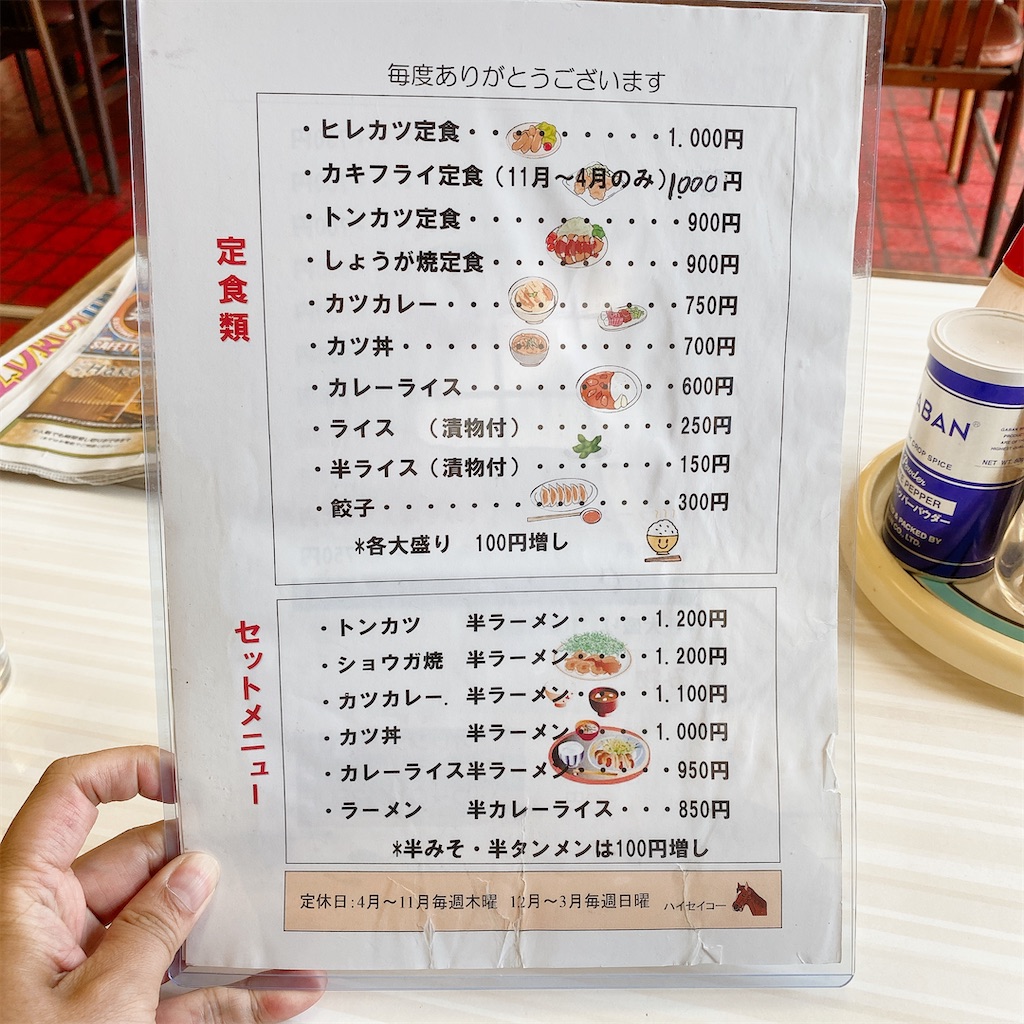 毎度ありがとうございます
定食類
・ヒレカツ定食・・・・・・・1.000円
・カキフライ定食（11月～4月のみ）1,000円
・トンカツ定食・・・・・・・・・900円
・しょうが焼定食・・・・・・・・900円
・カツカレー・・・・・・・・・・750円
・カツ丼・・・・・・・・・・・・700円
・カレーライス・・・・・・・・・600円
・ライス　（漬物付）・・・・・・250円
・半ライス（漬物付）・・・・・・150円
・餃子・・・・・・・・・・・・・300円
*各大盛り　100円増し
セットメニュー
・トンカツ　　半ラーメン・・・・1.200円
・ショウガ焼　半ラーメン・・・・1.200円
・カツカレー.　半ラーメン・・・・1.100円
・カツ丼　　　半ラーメン・・・・1.000円
・カレーライス半ラーメン・・・・・950円
・ラーメン　　半カレーライス・・・850円
*半みそ・半タンメンは100円増し
定休日:4月～11月毎週木曜　12月～3月毎週日曜　ハイセイコー
SAFETY
ABAN
CROP SPICE
NET WT.
PEPPER
パーパウダー
PACKED BY
CO., LTD.